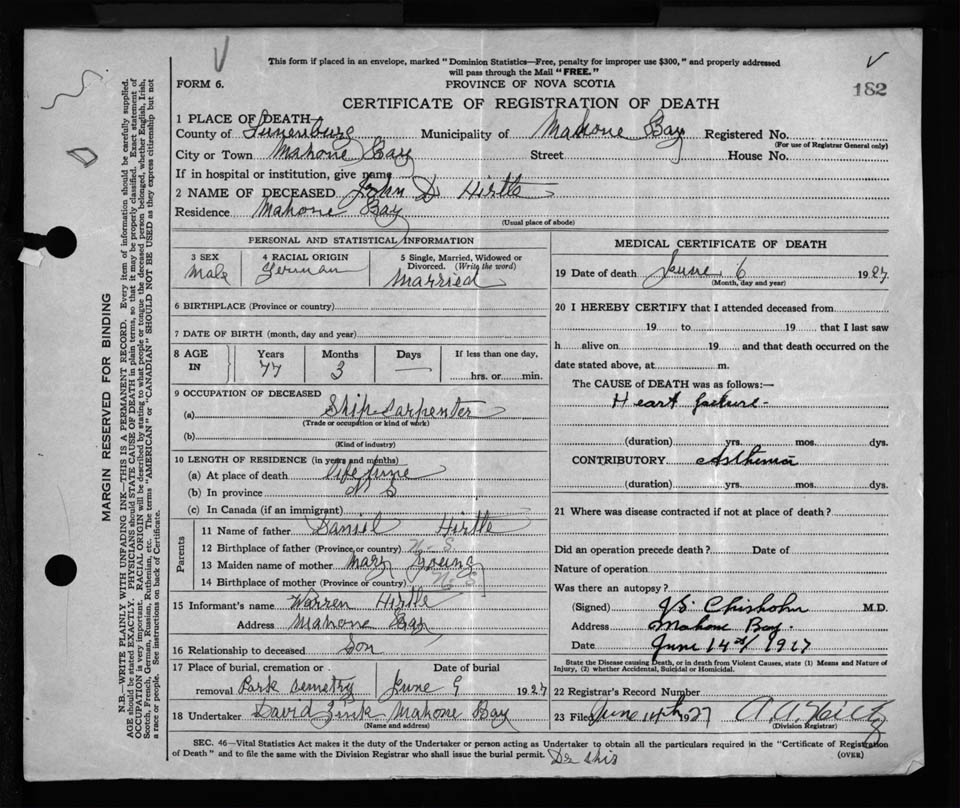 This form if placed in an envelope, marked "Dominion Statistics—Free, penalty for improper use $300," and properly addressed
will pass through the Mail "FREE."
FORM 6.
PROVINCE OF NOVA SCOTIA
182
CERTIFICATE OF REGISTRATION OF DEATH
1 PLACE OF DEATH
County of Lunenburg Municipality of Mahone Bay Registered No.
(For use of Registrar General only)
City or Town Mahone Bay Street House No.
If in hospital or institution, give name
2 NAME OF DECEASED John D Hirtle
Residence Mahone Bay
(Usual place of abode)
PERSONAL AND STATISTICAL INFORMATION
3 SEX
Male
4 RACIAL ORIGIN
German
5 Single, Married, Widowed or
Divorced. (Write the word)
Married
6 BIRTHPLACE (Province or country)
7 DATE OF BIRTH (month, day and year)
8 AGE IN
Years Months Days If less than one day,
77 3 — hrs. or min.
9 OCCUPATION OF DECEASED
(a) Ship Carpenter
(Trade or occupation or kind of work)
(b)
(Kind of industry)
10 LENGTH OF RESIDENCE (in years and months)
(a) At place of death life time
(b) In province N S
(c) In Canada (if an immigrant)
Parents
11 Name of father Daniel Hirtle
12 Birthplace of father (Province or country) N. S.
13 Maiden name of mother Mary Young
14 Birthplace of mother (Province or country) N. S
15 Informant's name Warren Hirtle
Address Mahone Bay
16 Relationship to deceased Son
17 Place of burial, cremation or removal Park Semetry
Date of burial
June 9 1927
18 Undertaker David Zink Mahone Bay
(Name and address)
MEDICAL CERTIFICATE OF DEATH
19 Date of death June 6 1927
(Month, day and year)
20 I HEREBY CERTIFY that I attended deceased from
19 to 19 that I last saw
h alive on 19 and that death occurred on the
date stated above, at m.
The CAUSE of DEATH was as follows:—
Heart failure -
(duration) yrs. mos. dys.
CONTRIBUTORY Asthma
(duration) yrs. mos. dys.
21 Where was disease contracted if not at place of death?
Did an operation precede death? Date of
Nature of operation
Was there an autopsy?
(Signed) Chisholm M.D.
Address Mahone Bay.
Date June 14th 1927
State the Disease causing Death, or in death from Violent Causes, state (1) Means and Nature of
Injury, (2) whether Accidental, Suicidal or Homicidal.
22 Registrar's Record Number
23 Filed June 14th 27
(Division Registrar)
SEC. 46—Vital Statistics Act makes it the duty of the Undertaker or person acting as Undertaker to obtain all the particulars required in the "Certificate of Registration
of Death" and to file the same with the Division Registrar who shall issue the burial permit.
(OVER)
MARGIN RESERVED FOR BINDING
N.B.—WRITE PLAINLY WITH UNFADING INK—THIS IS A PERMANENT RECORD. Every item of information should be carefully supplied.
AGE should be stated EXACTLY. PHYSICIANS should STATE CAUSE OF DEATH in plain terms, so that it may be properly classified. Exact statement of
OCCUPATION is very important. RACIAL ORIGIN will be described by stating to what people or tongue the deceased person belonged, whether English, Irish,
Scotch, French, German, Russian, Ruthenian, etc. The terms "AMERICAN" or "CANADIAN" SHOULD NOT BE USED as they express citizenship but not
a race or people. See instructions on back of Certificate.